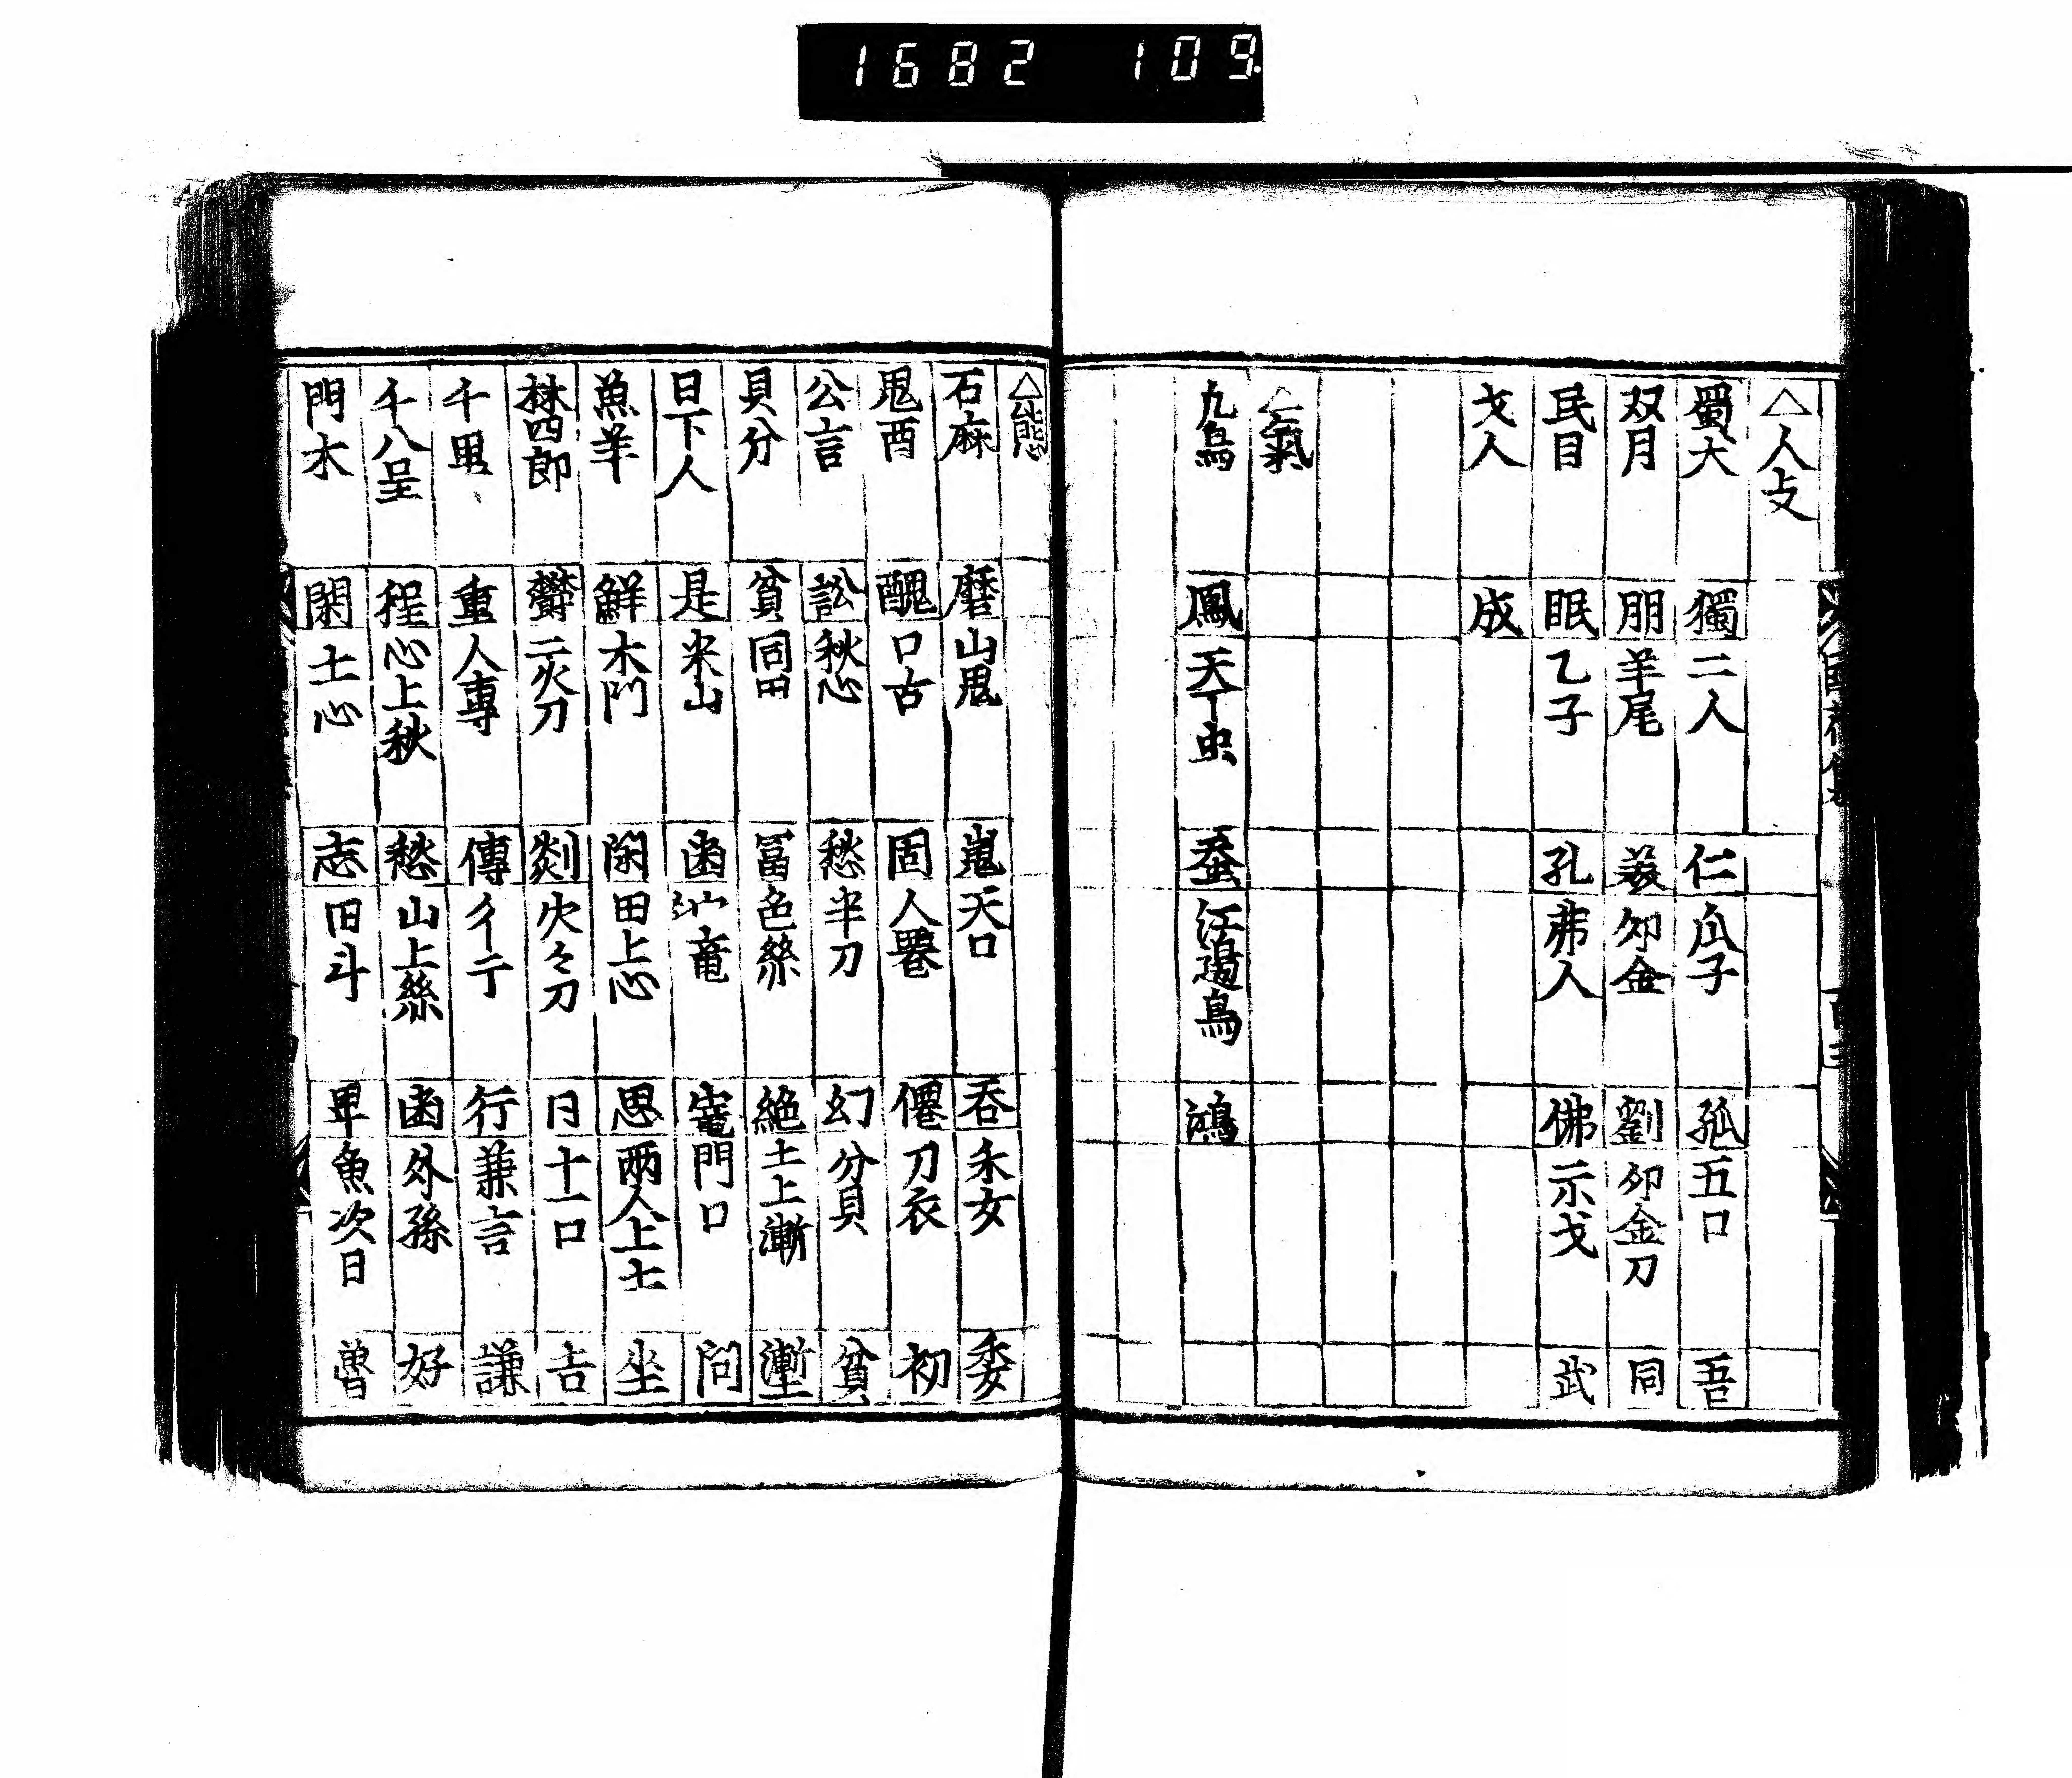 1682 109
△人支
蜀犬 獨 二人 仁 瓜子 孤 五口 吾
双月 朋 羊尾 羲 卯金 劉 卯金刀 同
民目 眠 乙子 孔 弗人 佛 示戈 武
戈人 成
△氣
九鳥 鳳 天下虫 蚕 江邊鳥 鴻
△態
石麻 磨 山鬼 嵬 天口 吞 禾女 委
鬼酉 醜 口古 固 人䙴 僊 刀衣 初
公言 訟 秋心 愁 半刀 幻 分貝 貧
貝分 貧 同田 冨 色絲 絶 土上漸 塹
日下人 是 米山 凾 竈 門口 問
魚羊 鮮 木門 閑 田上心 思 兩人上土 坐
林四郎 欝 二火刀 剡 火々刀 日 十一口 吉
千里 重 人專 傳 彳亍 行 兼言 謙
千八呈 程 心上秋 愁 山上絲 凾 外孫 好
門木 閑 士心 志 田斗 畢 魚次日 魯